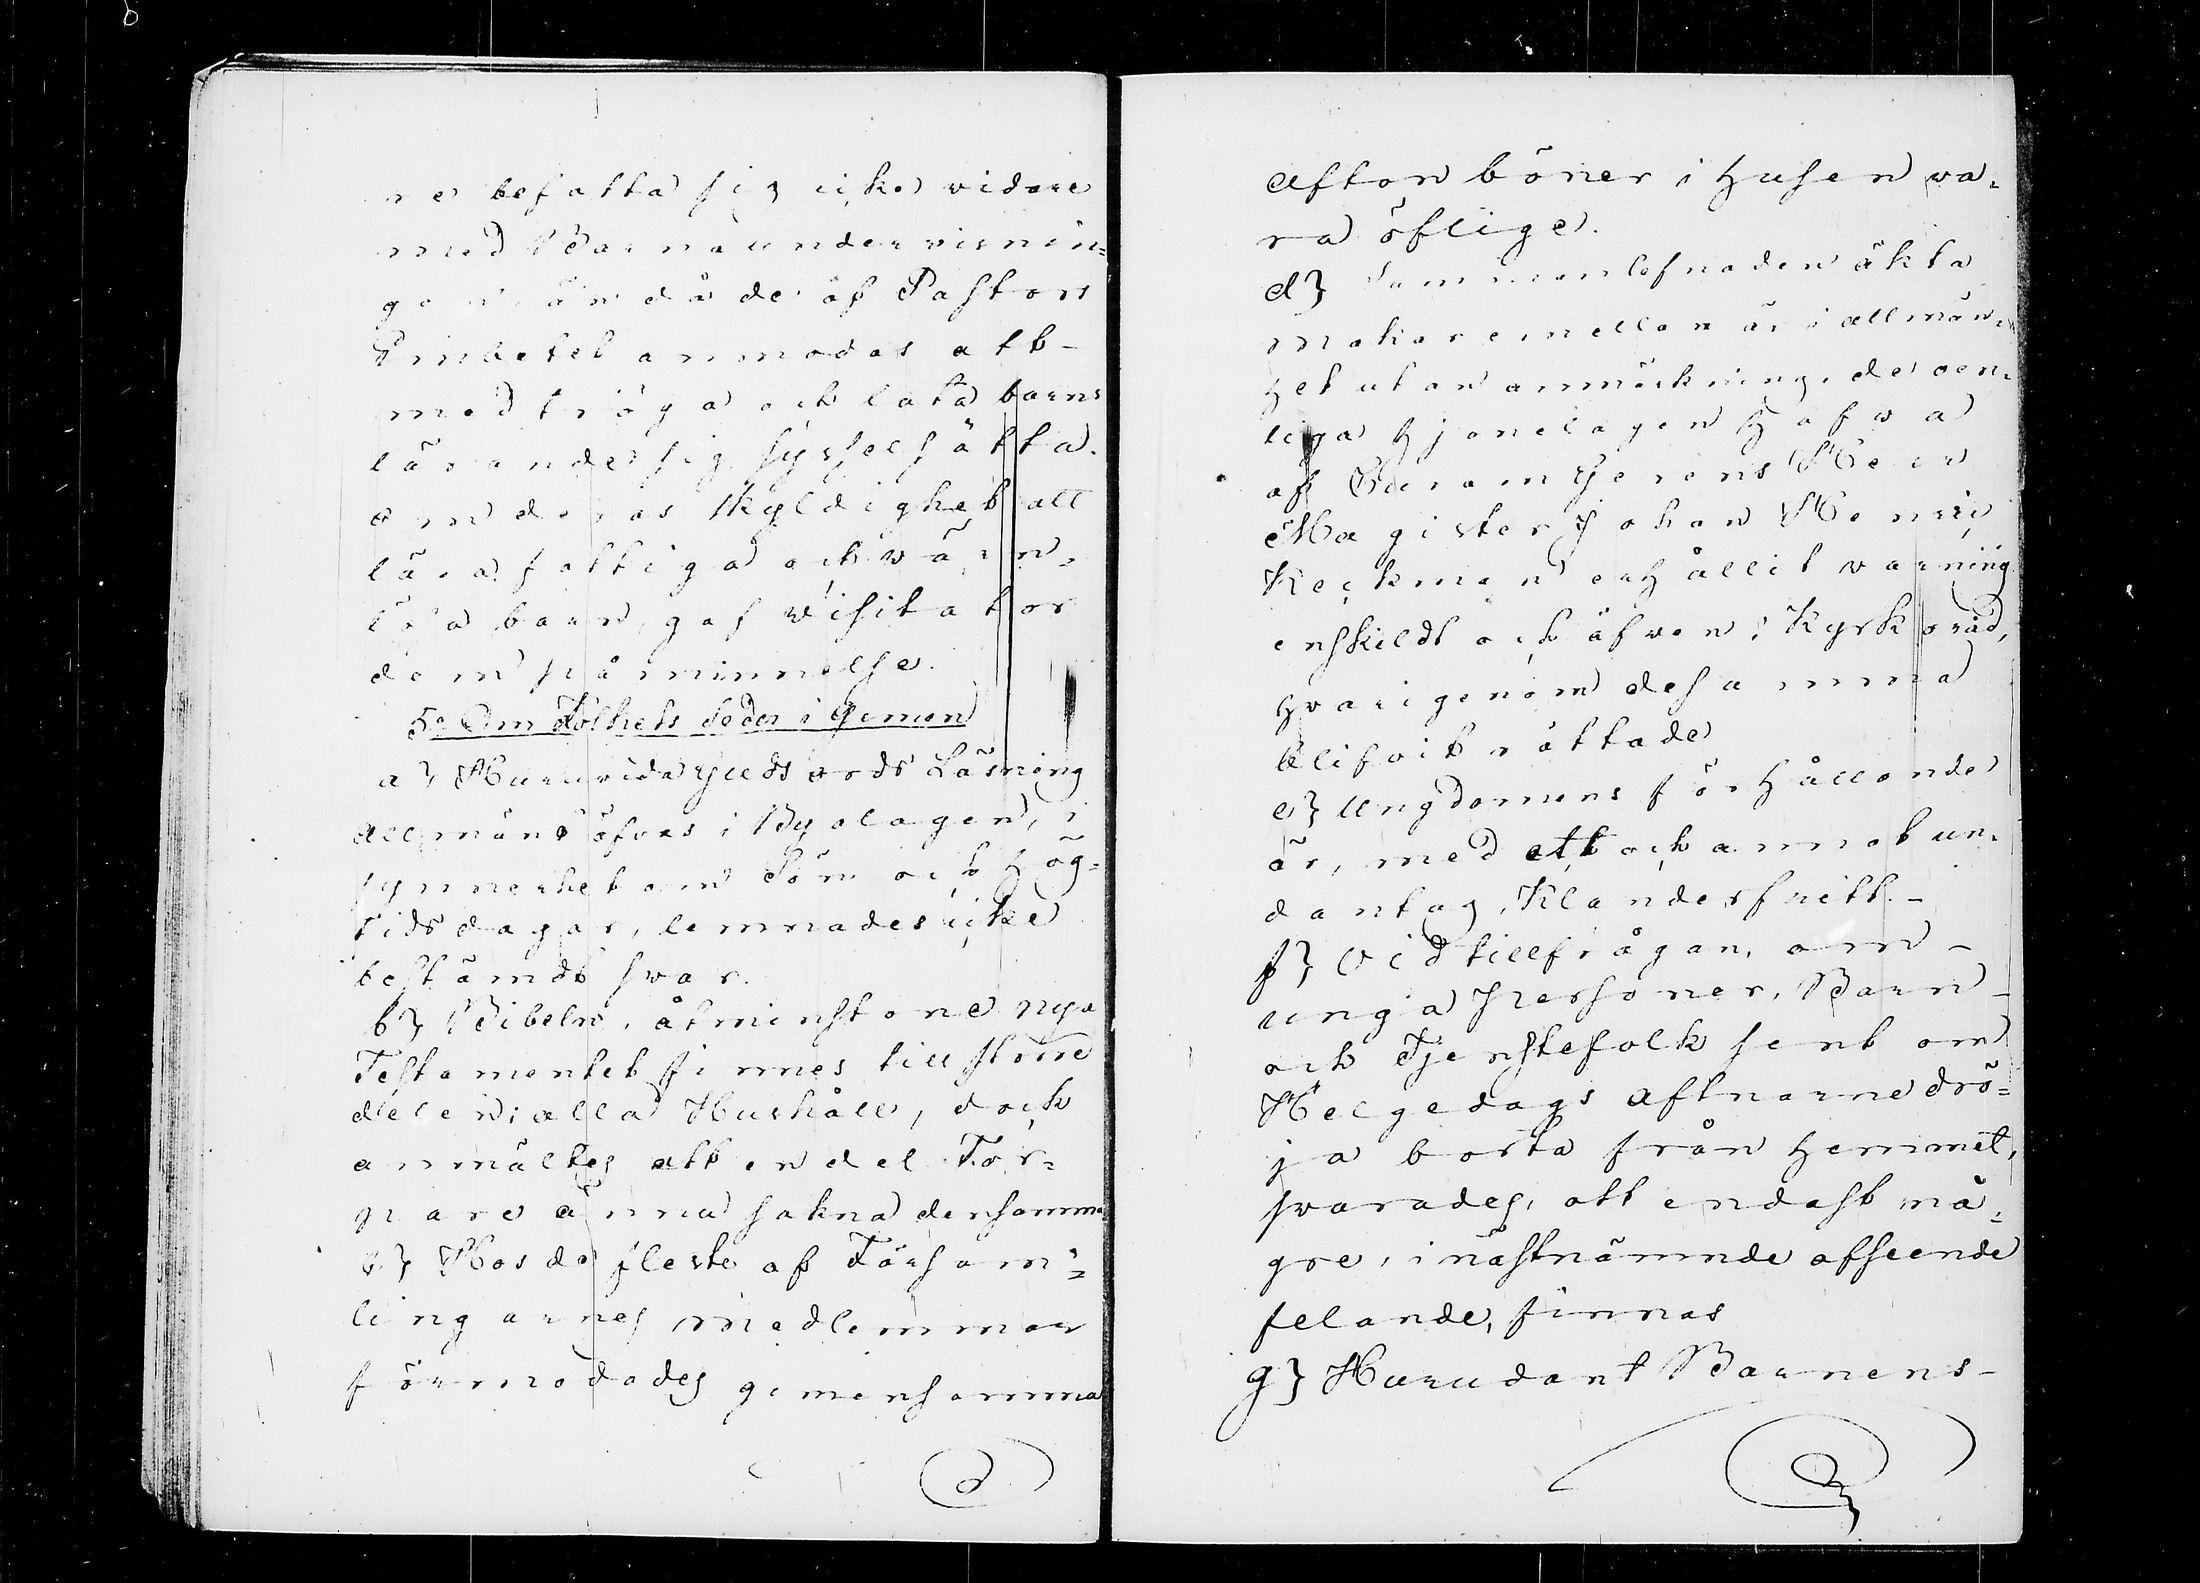 ne befatta sig icke vidare
med Barnaundervisnin=
gen än då de af Pastors
Embetet anmodas att-
med tröga och lata barns
lärande sig sysselsätta.
om deras skyldighet att
lära fattiga och värn=
lösa barn, gaf Visitator
dem påminnelse.
5o Om Folkets seder i Gemen
a} Huruvida Guds ords Läsning
allmänt öfvas i Byalagen, i
synnerhet om Sön och Hög=
tidsdagar, lemnades icke
bestämdt svar.
b} Bibeln, åtminstone nya
Testamentet finnes till större
delen i alla Hushåll, dock
anmältes att en del Tor=
pare ännu sakna densamma
c} Hos de fleste af Försam=
lingarnes medlemmar
förmodades gemensamma
afton böner i Husen va=
ra öflige.
d} Sammanlefnaden äkta
makar emellan är i allmän=
het utan anmärkning, de oen=
liga Hjonelagen Hafva
af Herr
Magister Johan Henric
Keckman erhållit varning
enskildt och äfven i Kyrkoråd,
hvarigenom desamma
blifvit rättade
e} Ungdomens förhållande
är, med ett och annat un=
dantag, Klanderfritt.-
f} Vid tillfrågan, om-
unga Personer, Barn-
och Tjenstefolk sent om
Helgedags aftnarne drö=
ja borta från hemmet,
svarades, att endast nå=
gre, i nästnämnde afseende
felande, finnas
g} Hurudant Barnens-